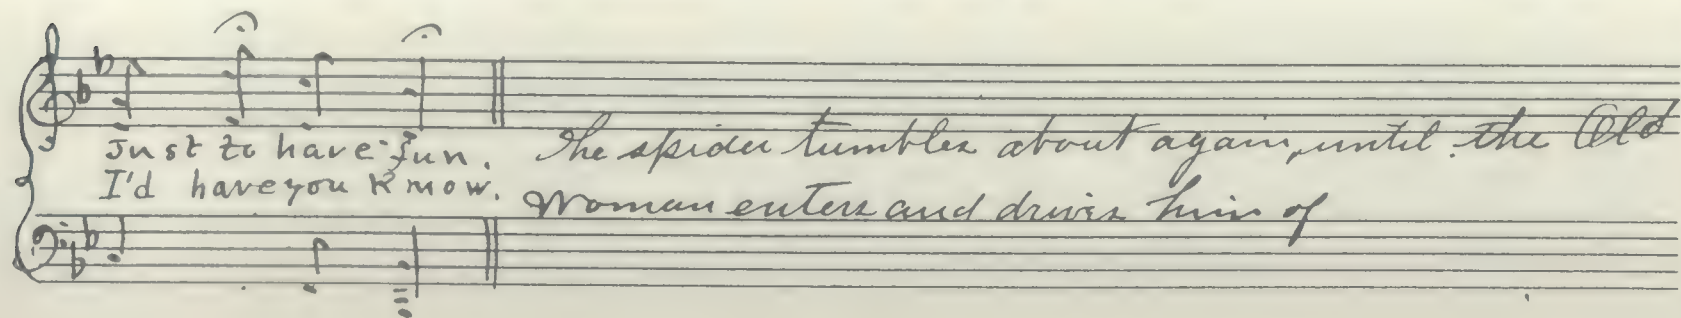 Just to have fun.
I'd have you know.
The spider tumbles about again, until the Old
Woman enters and drives him of